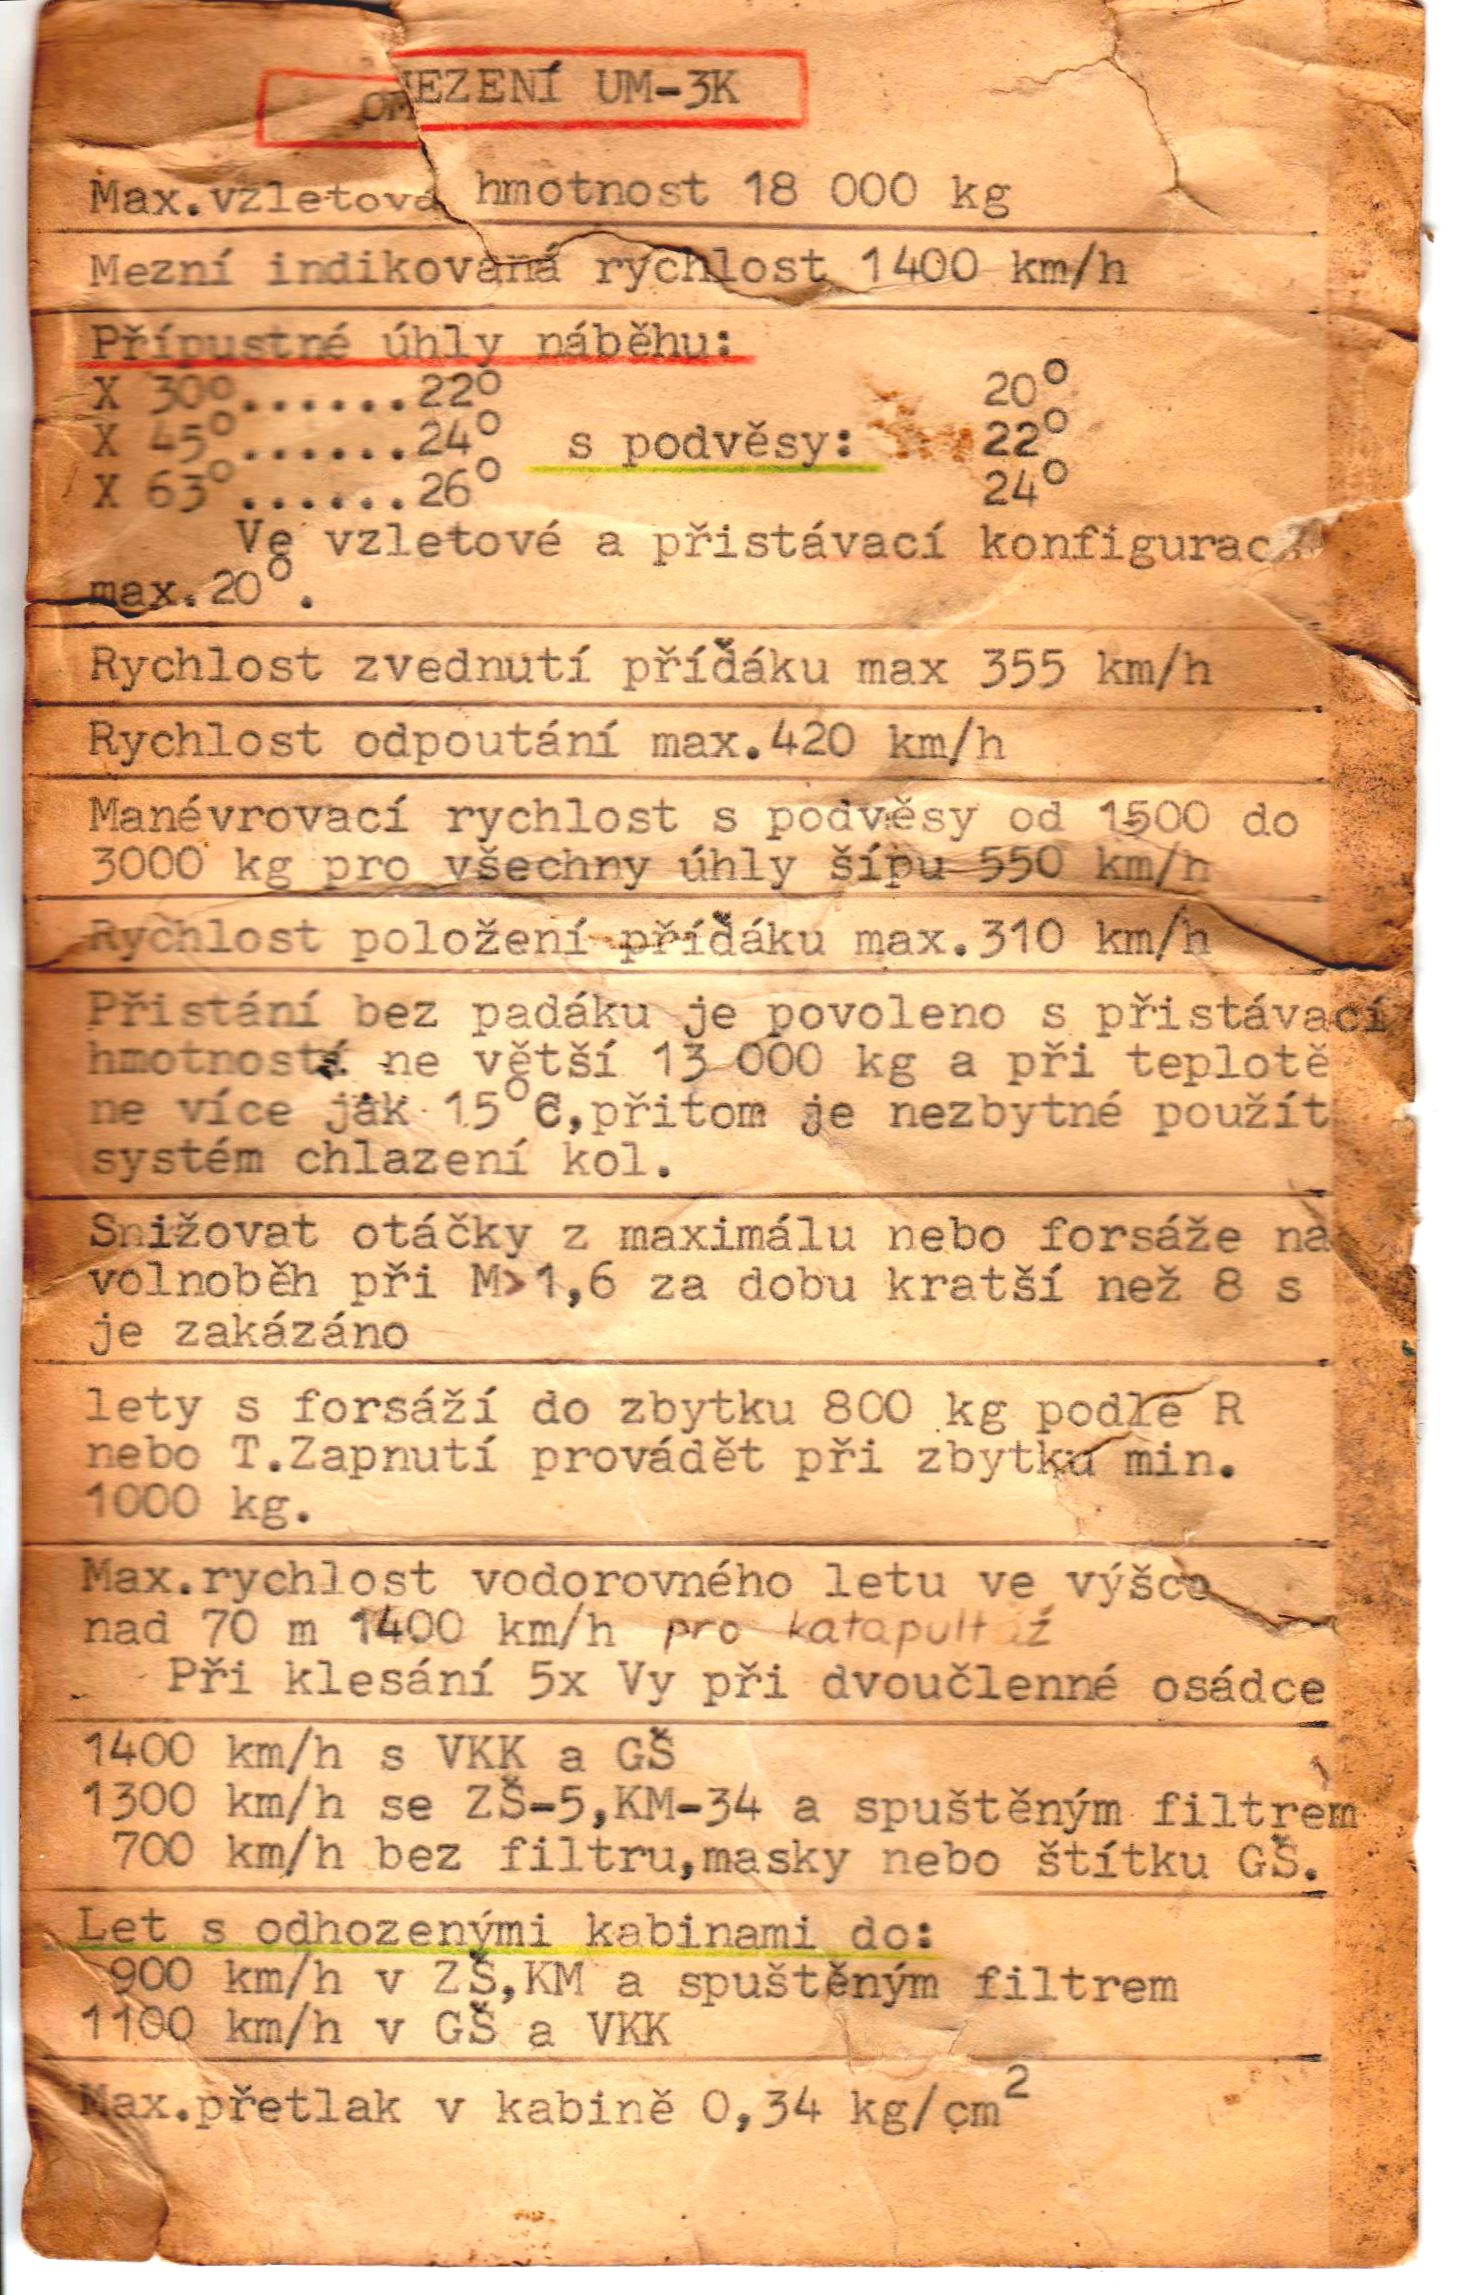 OMEZENÍ UM-3K
Max.vzletová hmotnost 18 000 kg
Mezní indikovaná rychlost 1400 km/h
Přípustné úhly náběhu:
X 30°......22° 20°
X 45°......24° s podvěsy: 22°
X 63°......26° 24°
Ve vzletové a přistávací konfiguraci
max.20°.
Rychlost zvednutí příďáku max 355 km/h
Rychlost odpoutání max.420 km/h
Manévrovací rychlost s podvěsy od 1500 do
3000 kg pro všechny úhly šípu 550 km/h
Rychlost položení příďáku max.310 km/h
Přistání bez padáku je povoleno s přistávací
hmotností ne větší 13 000 kg a při teplotě
ne více jak 15°C,přitom je nezbytné použít
systém chlazení kol.
Snižovat otáčky z maximálu nebo forsáže na
volnoběh při M>1,6 za dobu kratší než 8 s
je zakázáno
lety s forsáží do zbytku 800 kg podle R
nebo T.Zapnutí provádět při zbytku min.
1000 kg.
Max.rychlost vodorovného letu ve výšce
nad 70 m 1400 km/h pro katapultáž
Při klesání 5x Vy při dvoučlenné osádce
1400 km/h s VKK a GŠ
1300 km/h se ZŠ-5,KM-34 a spuštěným filtrem
700 km/h bez filtru,masky nebo štítku GŠ.
Let s odhozenými kabinami do:
900 km/h v ZŠ,KM a spuštěným filtrem
1100 km/h v GŠ a VKK
Max.přetlak v kabině 0,34 kg/cm²